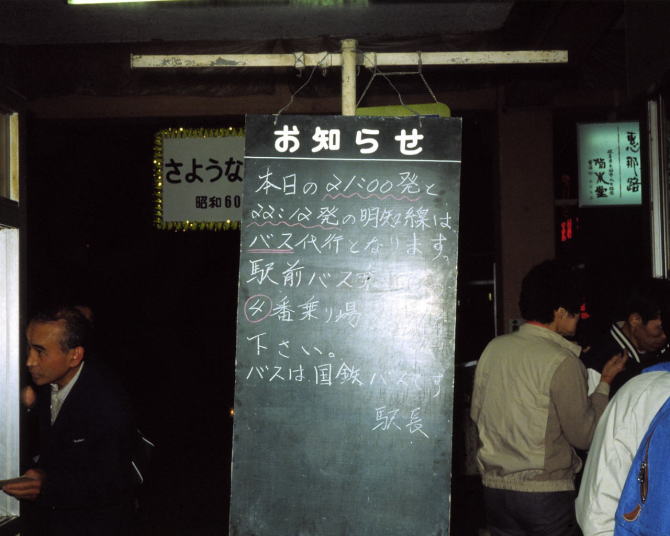 お知らせ
本日の21:00発と
22:12発の明知線は、
バス代行となります。
駅前バス
④番乗り場
下さい。
バスは国鉄バスです
駅長
さような
昭和60
恵那路